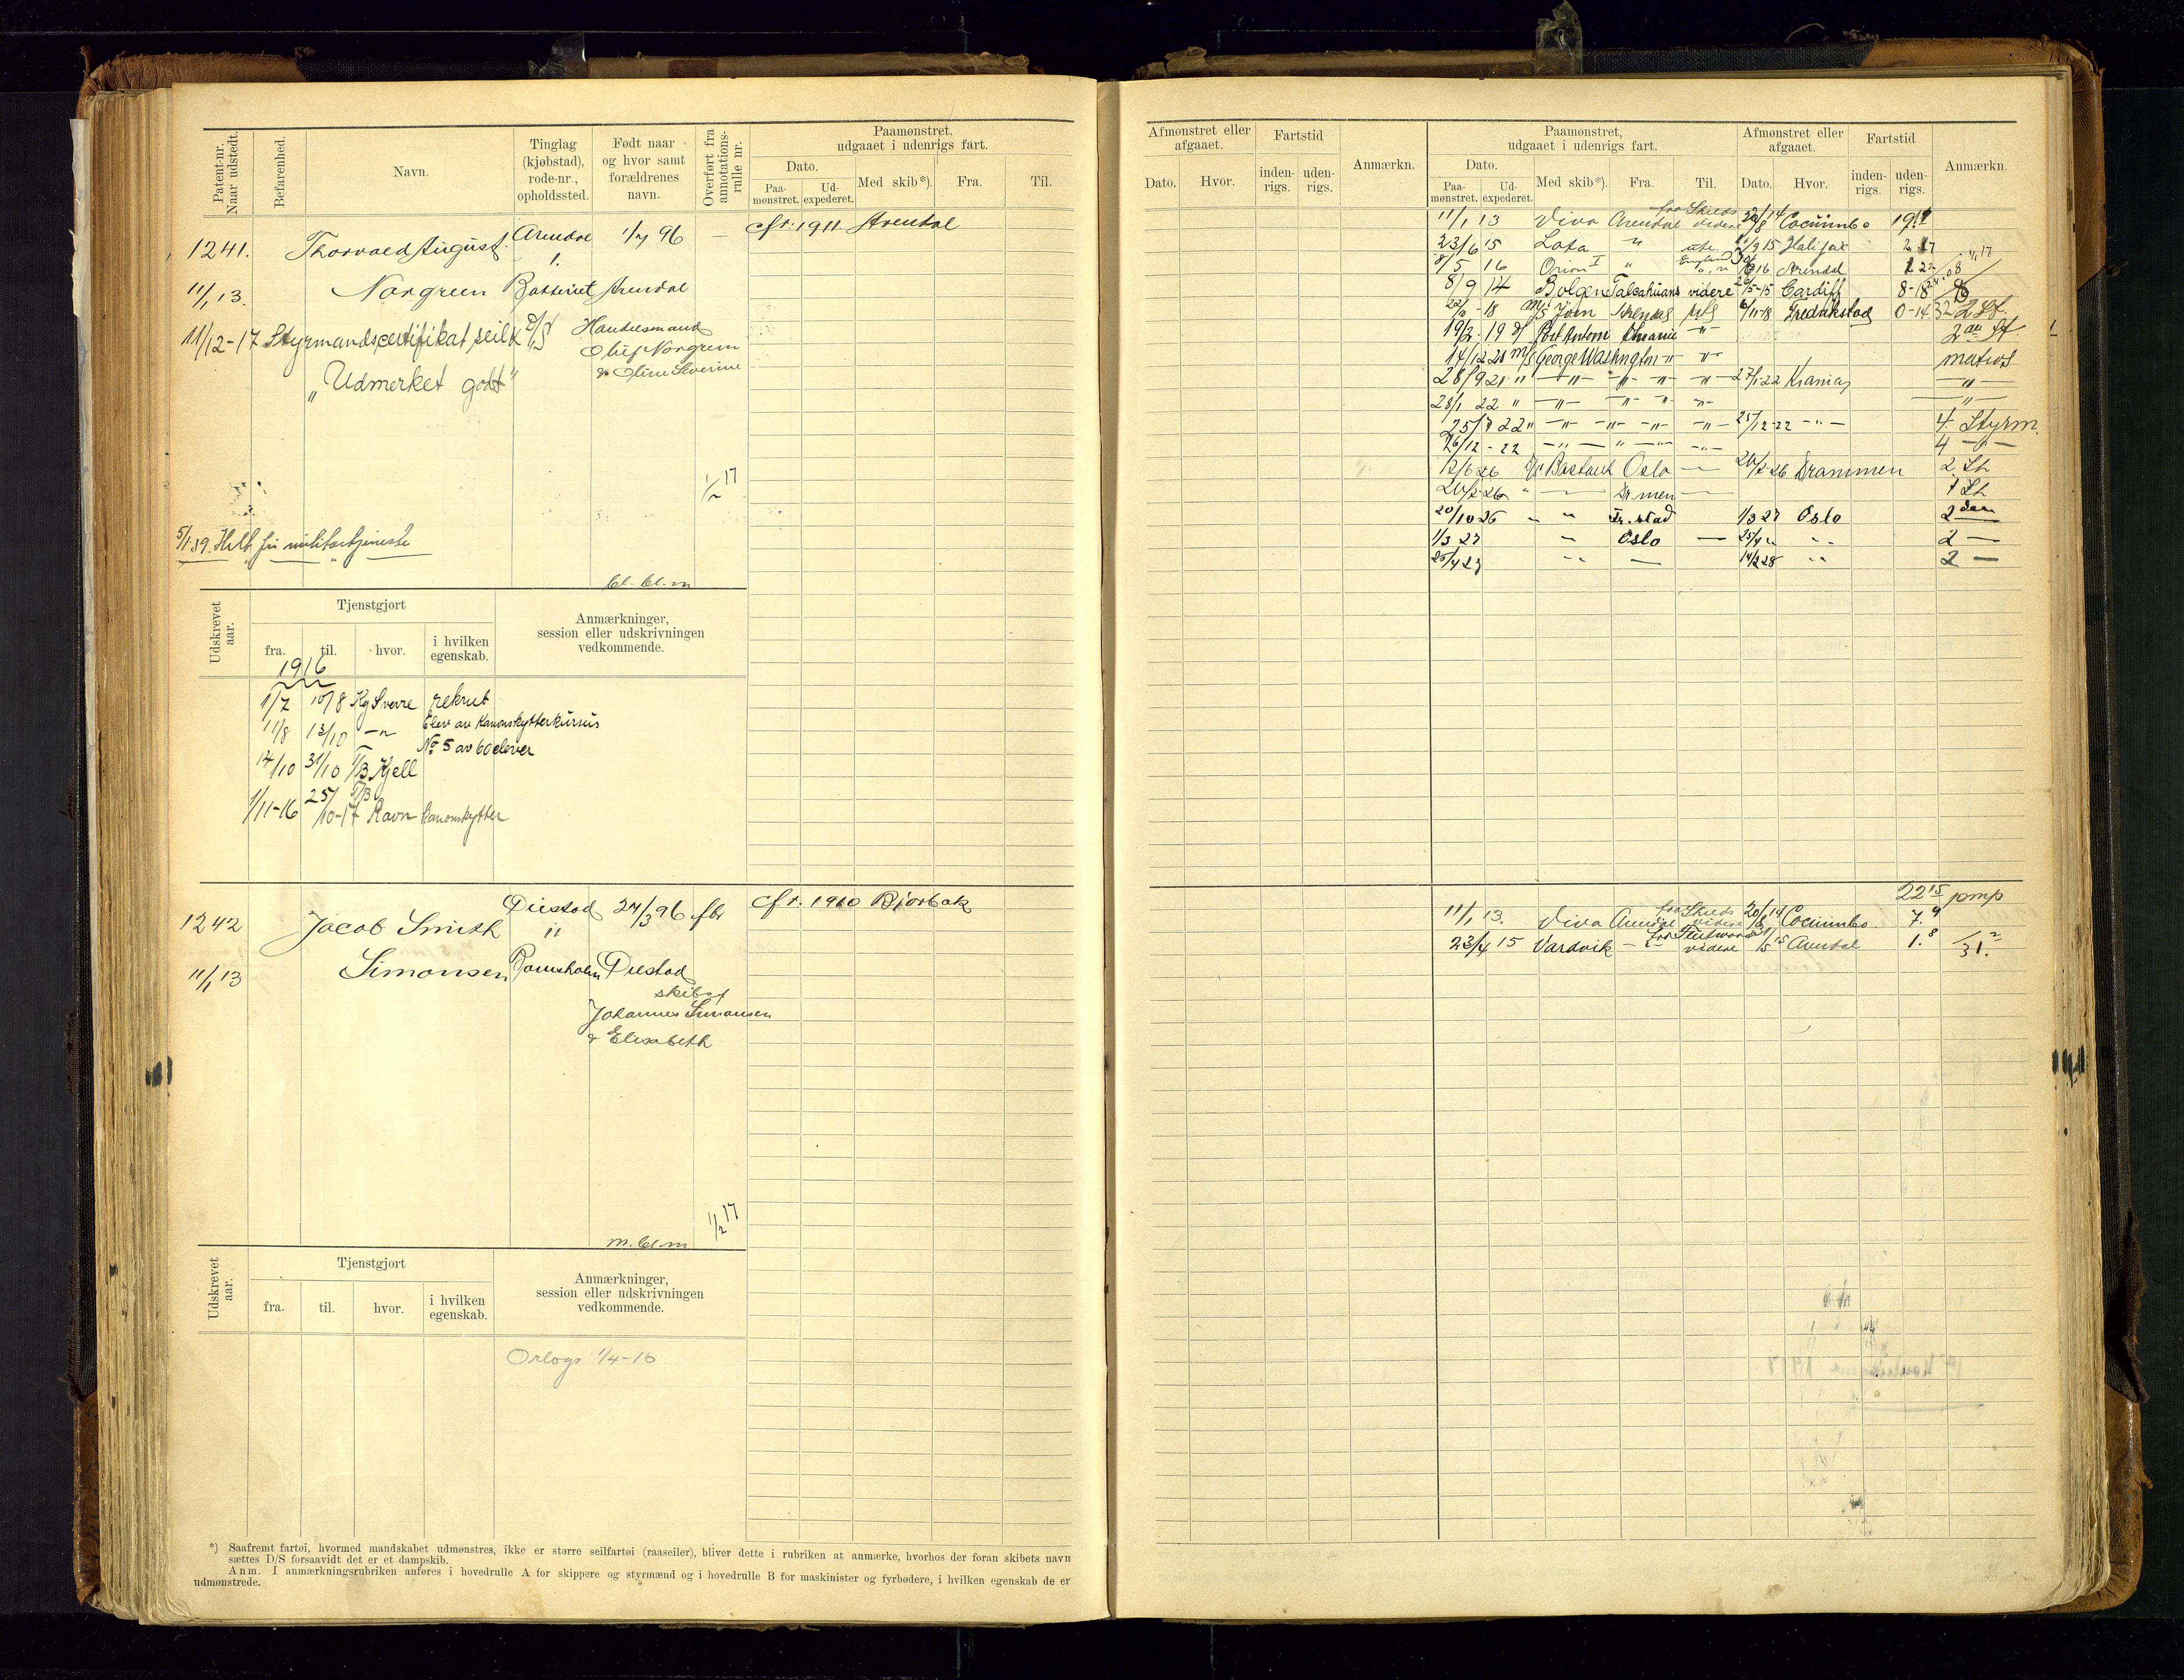 Patent-nr. Naar udstedt.
Befarenhed.
Navn.
Tinglag (kjøbstad), rode-nr., opholdssted.
Født naar og hvor samt forældrenes navn.
Overført fra annotations-rulle nr.
Paamønstret, udgaaet i udenrigs fart.
Dato.
Paa-mønstret.
Ud-expederet.
Med skib*).
Fra.
Til.
1241.
Thorvald August
Arendal
1/7 96
—
cfr. 1911 Arendal
1.
11/1 13.
Norgreen
Batteriet
Arendal
11/12-17 Styrmandscertifikat, seil & D/S
Handelsmand
Oluf Norgreen
& Oline Severine
„Udmerket godt"
1/2 17
5/1.39. Helt fri militærtjeneste
bl. bl. m
Udskrevet aar.
Tjenstgjort
fra.
til.
hvor.
i hvilken egenskab.
Anmærkninger, session eller udskrivningen vedkommende.
1916
1/7 10/8 Kg Sverre rekrut
11/8 13/10 —"— Elev av Kanonskytterkursus
No 5 av 60 elever
14/10 31/10 T/B Kjell
1/11-16 25/10-17 T/B Ravn Kanonskytter
1242
Jacob Smith
Øiestad
24/3 96 fbr
cfr. 1910 Bjorbak
"
11/1 13
Simonsen
Øiestad
skibsf
Johannes Simonsen
& Elisabeth
1/2 17
m. bl. m
Udskrevet aar.
Tjenstgjort
fra.
til.
hvor.
i hvilken egenskab.
Anmærkninger, session eller udskrivningen vedkommende.
Orlogs 1/4-16
*) Saafremt fartøi, hvormed mandskabet udmønstres, ikke er større seilfartøi (raaseiler), bliver dette i rubriken at anmærke, hvorhos der foran skibets navn
sættes D/S forsaavidt det er et dampskib.
Anm. I anmærkningsrubriken anføres i hovedrulle A for skippere og styrmænd og i hovedrulle B for maskinister og fyrbødere, i hvilken egenskab de er
udmønstrede.
Afmønstret eller afgaaet.
Dato.
Hvor.
Fartstid
inden-rigs.
uden-rigs.
Anmærkn.
Paamønstret, udgaaet i udenrigs fart.
Dato.
Paa-mønstret.
Ud-expederet.
Med skib*).
Fra.
Til.
Afmønstret eller afgaaet.
Dato.
Hvor.
Fartstid
inden-rigs.
uden-rigs.
Anmærkn.
11/1 13 Viva Arendal fra Skilds videre 20/8 14 Cocuimbo 19.9
23/6 15 Lota " ute 15 Halifax 2.17
8/5 16 Orion I " England 16 Arendal 1 22
8/9 14 Bolgen Talcahuano videre 15-15 Cardiff 8-18
22/10 -18 M/S Arendal 6/11-18 Fredrikstad 0-14 2 St.
19/2.19 —"— 2den St.
14/12 21 M/S George Washington —"— —"— matros
28/9 21 " —"— —"— —"— —"— 27/1 22 Krania —"—
28/1 22 " —"— —"— —"— —"— —"—
25/7 22 " —"— —"— —"— —"— 25/12-22 —"— 4 Styrm.
26/12-22 —"— —"— —"— 4 —"—
12/6 26 Oslo — 20/ 26 Drammen 2 St
20/ 26 " — Dr.men — 1 St
20/10 26 " " Fr.stad 1/3 27 Oslo 2den
1/3 27 " Oslo — 25/4 " " 2 —
25/4 27 " — 14/2 28 " 2 —
22 15 pmp
11/1 13. Viva Arendal fra Skilds videre 20/8 14 Cocuimbo. 7.9
23/4 15 Vardvik —"— fra Fleetwood videre 15 Arendal 1.8 31.2